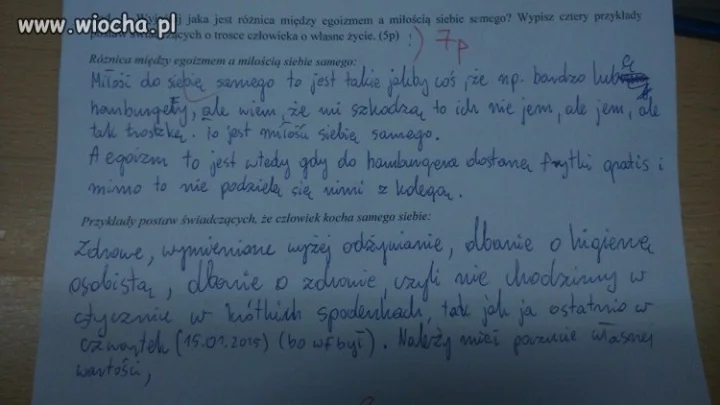 www.wiocha.pl
jaka jest różnica między egoizmem a miłością siebie samego? Wypisz cztery przykłady
postaw świadczących o trosce człowieka o własne życie. (5p) :) 7p
Różnica między egoizmem a miłością siebie samego:
Miłość do siebię samego to jest takie jakby coś, że np. bardzo lubię
hamburgery, ale wiem, że mi szkodzą to ich nie jem, ale jem, ale
tak troszkę. To jest miłość siebię samego.
A egoizm to jest wtedy gdy do hamburgera dostanę frytki gratis i
mimo to nie podzielę się nimi z kolegą.
Przykłady postaw świadczących, że człowiek kocha samego siebie:
Zdrowe, wymienione wyżej odżywianie, dbanie o higienę
osobistą, dbanie o zdrowie, czyli nie chodzimy w
styczniu w krótkich spodenkach, tak jak ja ostatnio w
czwartek (15.01.2015) (bo wf był). Należy mieć poczucie własnej
wartości,